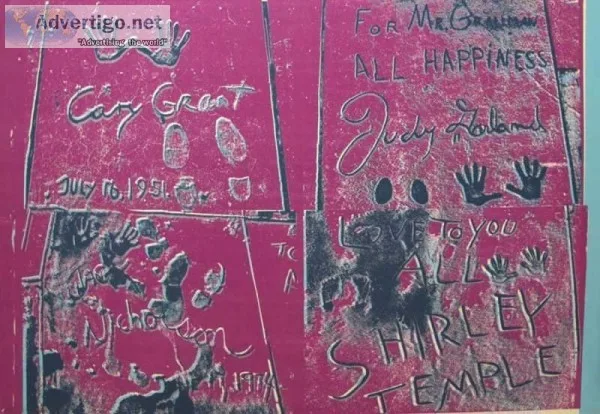 Advertigo.net
"Advertising the world"
Cary Grant
JULY 16, 1951.
FOR MR. GRAUMAN
ALL HAPPINESS
Judy Garland
Nicholson
LOVE TO YOU
ALL
SHIRLEY
TEMPLE